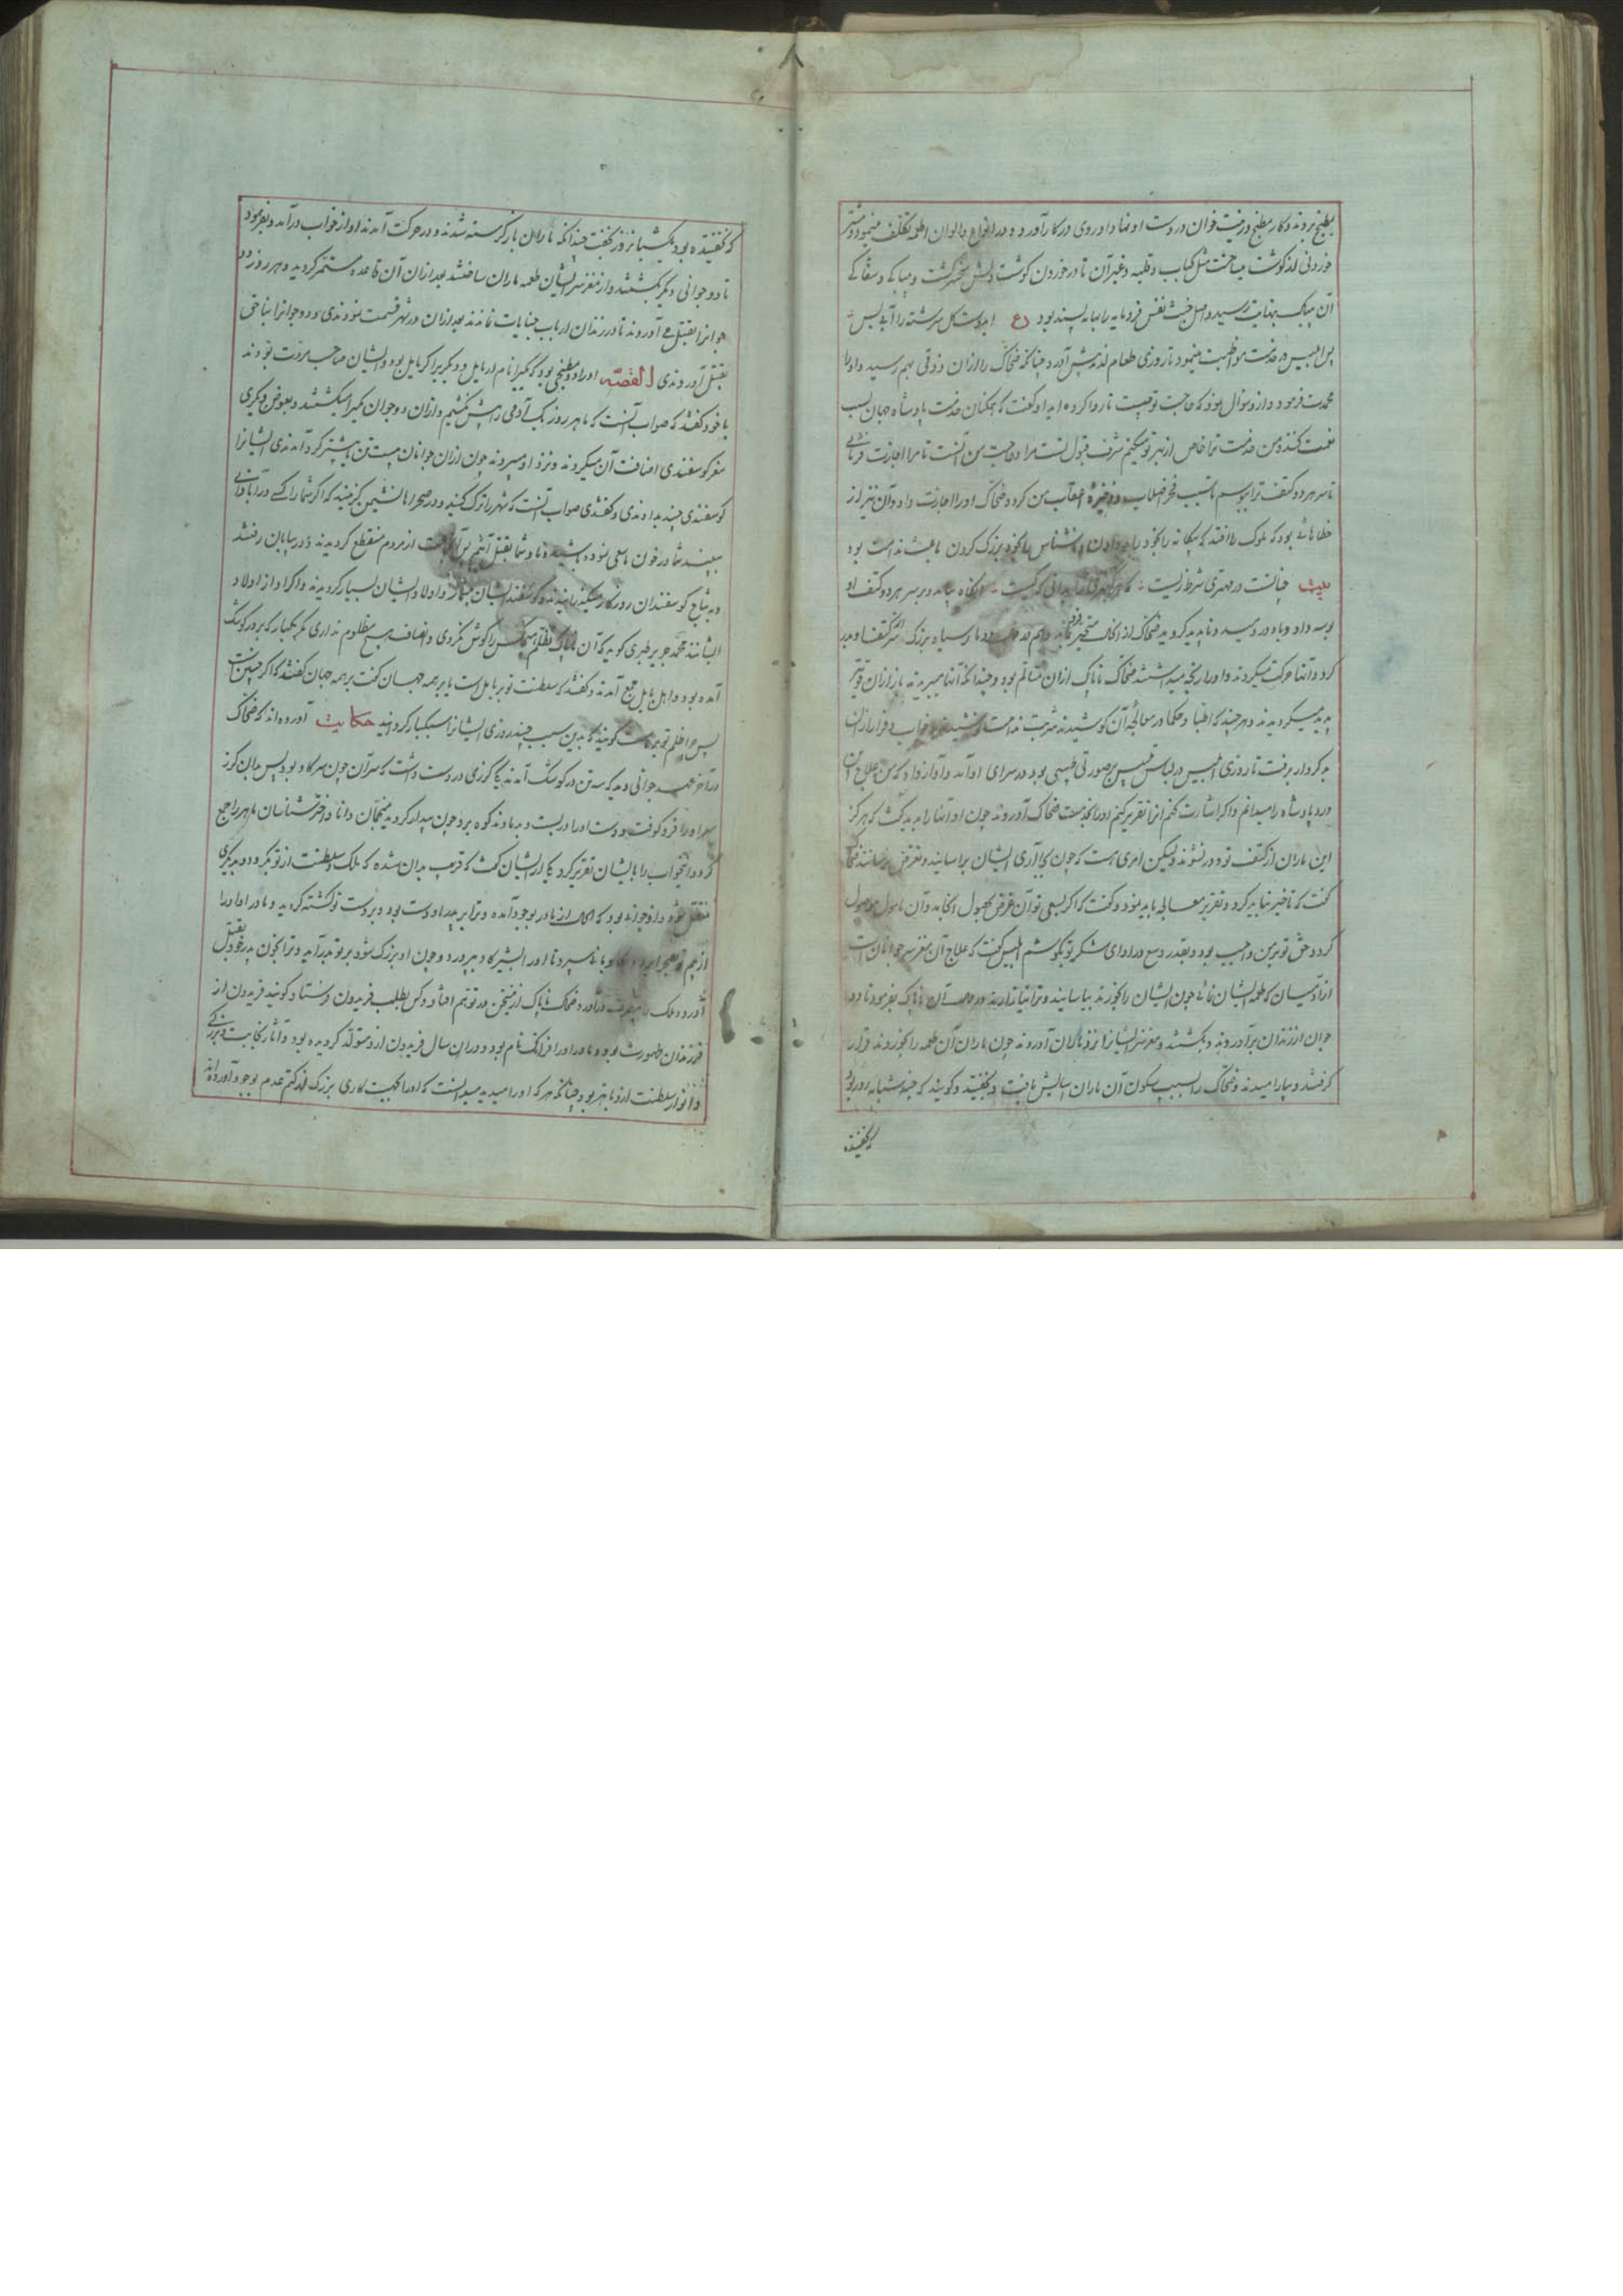 مطبخ بردند و کار مطبخ و زینت خوان در دست او نهاد او روی در کار آورد و انواع و الوان اطعمه تکلف مینمود و بیشتر
خوردنی از گوشت میساخت مثل کباب و قلیه و غیر آن تا در خوردن گوشت دلش سخت گشت و
آن بنهایت رسید و اصل خبیث نفس فرومایه را پسند بود
پس ابلیس در خدمت مواظبت مینمود تا روزی طعام لذیذ پیش آورد چنانکه ضحاک را از آن ذوقی بهم رسید و او را
محمدت فرمود و از او سوال نمود که حاجت تو چیست تا روا کرده اید او گفت که همگنان خدمت پادشاه جهان بسبب
نعمت کنند و من خدمت ترا خاص از بهر تو میکنم شرف قبول تست مرا و حاجت من آنست تا مرا اجازت فرمائی
تا سر هر دو کتف ترا ببوسم تا سبب فخر اخلاف و ذخیره اعقاب من کردد ضحاک او را اجازت داد و آن نیز از
خطاهائی بود که ملوک را افتد که بیگانه را بخود راه دادن و ناشناس را بخود بزرگ کردن باعث ندامت بود
بیت چنانست در مهتری شرط زیست که هر کهتری را بدانی که کیست آنگاه بیامد و بر سر هر دو کتف او
بوسه داد و باد در دمید و ناپدید کردید ضحاک از آنحال متحیر بماند و هم در دو مار سیاه بزرگ از سر کتفهاء او بدر
کرد و آنها حرکت میکردند و او را رنجه میداشتند ضحاک ناپاک از آن متألم بود و چندانکه آنها میبریدند باز از آن قویتر
پدید میکردیدند و هر چند که اطبا و حکما در معالجه آن کوشیدند شربت ندامت نوشیدند و خواب و قرار از آن
بدکردار برفت تا روزی ابلیس در لباس تلبیس بر صورت طبیبی بدر سرای او آمد و آواز داد که من علاج این
درد پادشاه را میدانم و اگر اشارت کنم آنرا تقریر کنم او را بخدمت ضحاک آوردند چون او آنها را بدید گفت که هرگز
این ماران از کتف تو دور نشوند ولیکن امری هست که چون بجا آری ایشان بیاسایند و تعرض نرسانند ضحاک
گفت که تأخیر نباید کرد و تقریر معالجه باید نمود و گفت که اگر بسعی تو آن غرض بحصول انجامد و آن مامول موصول
کردد حق تو بر من واجب بود و بقدر وسع در ادای شکر تو بکوشم ابلیس گفت که علاج آن مغز سر جوانانست
از آدمیان که طعمه ایشان نمائی چون ایشان را بخورند بیاسایند و ترا نیازارند در حال آن ناپاک بفرمود تا دو
جوان از زندان برآوردند و بکشتند و مغز سر ایشان را نزد ماران آوردند چون ماران آن طعمه را بخوردند قرار
گرفتند و بیارامیدند و ضحاک را بسبب سکون آن ماران آسایش یافت و بخفت و گویند که چند شبانه روز بود
که نخفتیده
که نخفتیده بود یکشبانروز بخفت چندانکه ماران باز گرسنه شدند و در حرکت آمدند او از خواب درآمد و بفرمود
تا دو جوانی دیگر بکشتند و از مغز سر ایشان طعمه ماران ساختند بعد از آن آن قاعده مستمر کردید و هر روز دو
جوانرا بقتل می آوردند تا در زندان ارباب جنایات نماندند بعد از آن در شهر قسمت نمودندی و دو جوانرا بناحق
بقتل آوردندی القصه او را دو مطبخی بود که یکی را نام ارمایل و دیگری را کرمایل بود و ایشان صاحب مروت بودند
با خود گفتند که صواب آنست که ما هر روز یک آدمی را بیش نکشیم و از آن دو جوان یکی را میکشتند و بعوض دیگری
مغز گوسفندی اضافت آن میکردند و نزد او میبردند چون از آن جوانان بیست تن بیشتر گرد آمدندی ایشانرا
گوسفندی چند بدادندی و گفتندی صواب آنست که شهر را ترک کنید و در صحراها نشیمن گزینید که اگر شما را کسی در آبادانی
بیند شما در خون ما سعی نموده باشید و ما و شما بقتل آئیم از مردم منقطع کردیدند و در بیابان رفتند
و به نتاج گوسفندان روزگار میگذرانیدند و گوسفند ایشان بسیار و اولاد ایشان بسیار کردیدند و اکراد از اولاد
ایشانند محمد جریر طبری گوید که آن ناپاک تظلم هیچکس را گوش نکردی و انصاف هیچ مظلوم ندادی مگر یکبار که بر در کوشک
آمده بود و اهل بابل جمع آمدند و گفتند که سلطنت تو بر بابل است یا بر همه جهان گفت بر همه جهان گفتند که اگر چنین است
پس چرا ظلم تو بر ماست گویند که بدین سبب چند روزی ایشانرا سبکبار گردانید حکایت آورده اند که ضحاک
در آخر عهد جوانی دید که سه تن در کوشک آمدند یکی گرزی در دست داشت که سر آن چون سر گاو بود پس بدان گرز
سر او را فرو کوفت و دست او را در بست و بدماوند کوه برد چون بیدار کردید منجمان دانا و اخترشناسان ماهر را جمع
کرد و آن خواب را با ایشان تقریر کرد یکی از ایشان گفت که قریب بدان شده که ملک و سلطنت از تو بگردد و بدیگری
منتقل شود و آنکس از مادر بوجود آمده و ترا بر پدر او دست بود و بر دست تو کشته کردید و مادر او او را
از بیم تو سپرد تا او را بشیر گاو بپرورد و چون او بزرگ شود بر تو بدر آید و ترا بخون پدر خود بقتل
آورد و ملک را بتصرف درآورد ضحاک ناپاک از این سخن در توهم افتاد و کس بطلب فریدون فرستاد و گویند فریدون از
فرزندان طهمورث بود و مادر او را فرانک نام بود و در آن سال فریدون از او متولد کردیده بود و آثار نجابت و بزرگی
و انوار سلطنت از او باهر بود چنانکه هر که او را میدید میدانست که او را بجهت کاری بزرگ از کتم عدم بوجود آورده اند